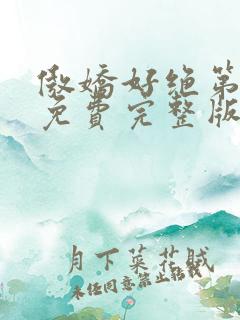 傲嬌好绝第
免费完整版
月下菜花贼
未经同意禁止转载